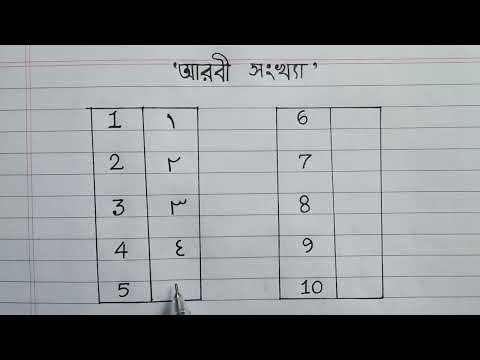 'আরবী সংখ্যা'
1 ١ 6
2 ٢ 7
3 ٣ 8
4 ٤ 9
5 10